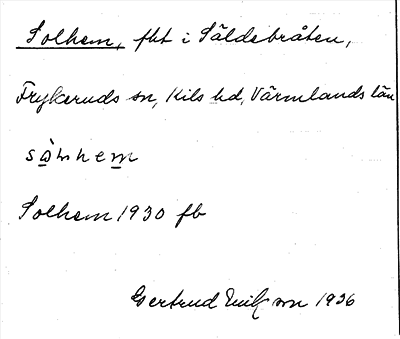 Solhem, fht i Säldebråten,
Frykeruds sn, Kils hd, Värmlands län
Solhem 1930 fb
Gertrud 1936